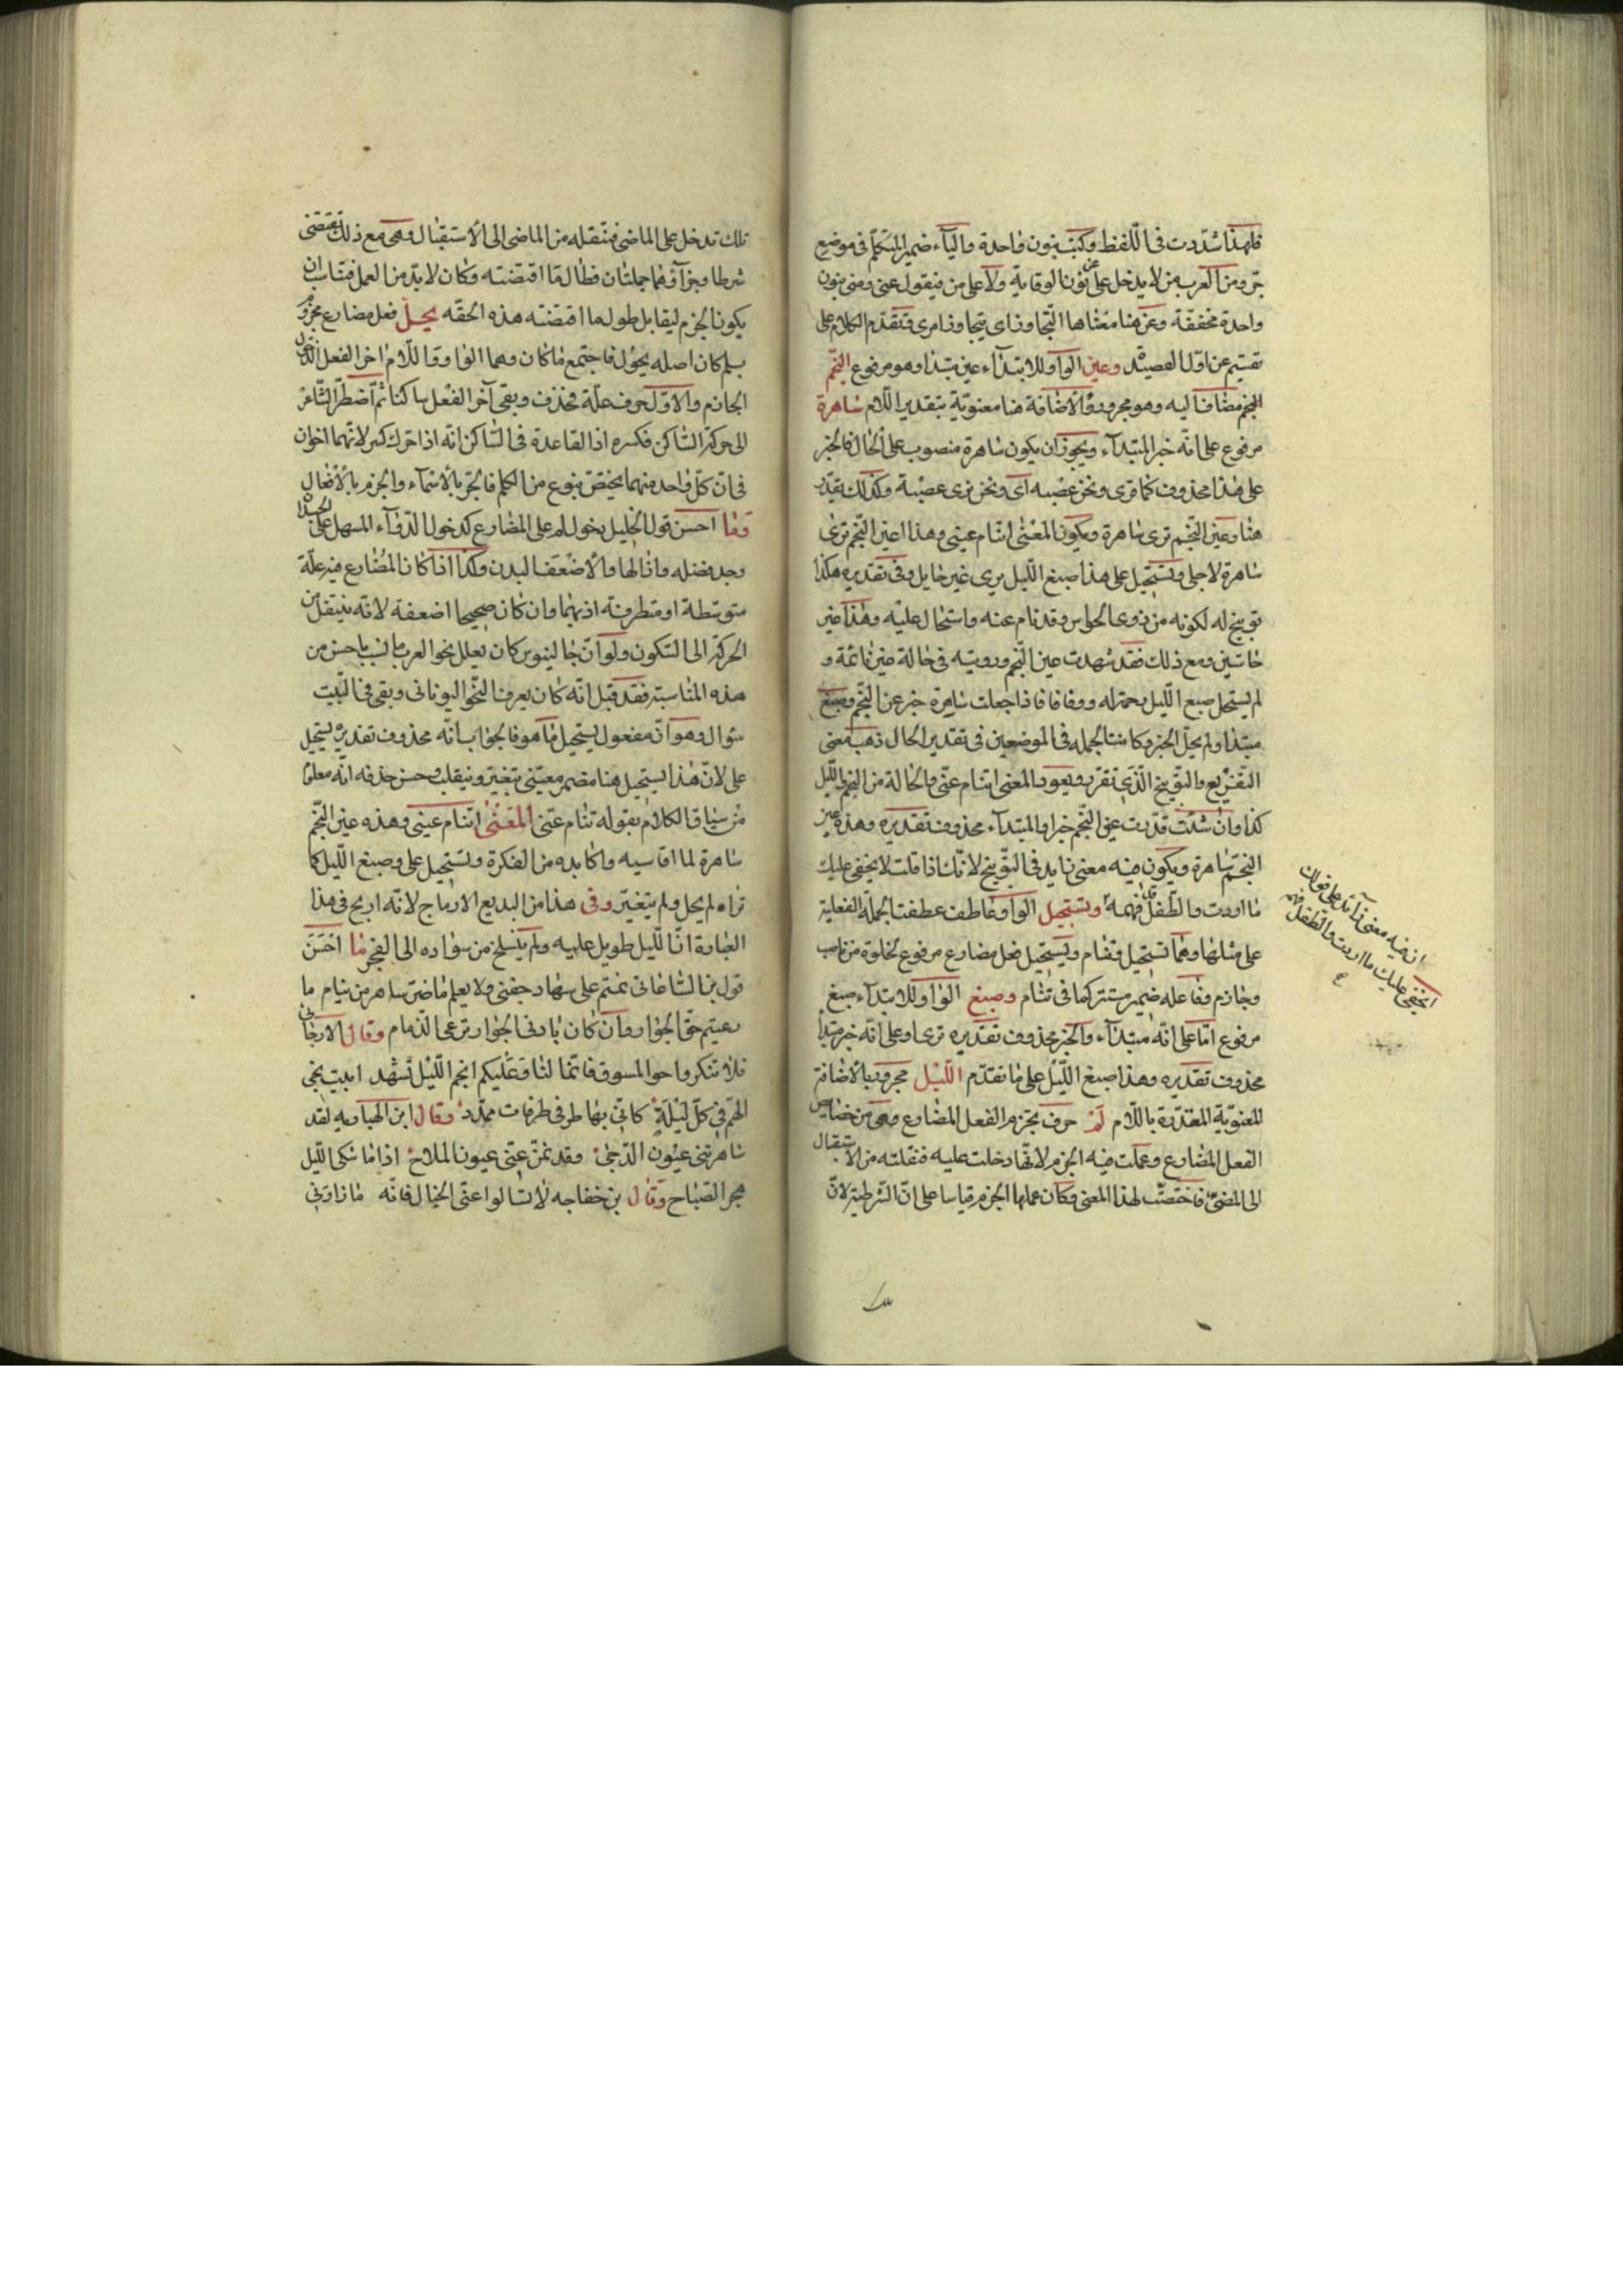 فلهذا شدّدت في اللّفظ وكتبت بنون واحدة والياء ضمير المتكلّم في موضع
جرّ ومن العرب من لا يدخل على نون الوقاية ولا على من فيقول عني ومني بنون
واحدة مخففة وعن هنا معناها التجاوز اي يتجاوز امري وتقدّم الكلام على
تقسيم عن اوّل القصيدة وعين الواو للابتداء عين مبتدا وهو مرفوع النجم
النجم مضاف اليه وهو مجرور والاضافة هنا معنوية بتقدير اللام ساهرة
مرفوع على انّه خبر المبتداء ويجوز ان يكون ساهرة منصوب على الحال والخبر
على هذا محذوف كما قرى ونحن عصبة اى ونحن نرى عصبة وكذلك تقدّر
هنا وعين النجم ترى ساهرة ويكون المعنى اتنام عيني وهذا اعين النّجم ترى
ساهرة لاجلي وتستحيل على هذا صبغ اللّيل يرى غير حايل وفى تقديره هكذا
توبيخ له لكونه من ذوى الحواس وقد نام عنه واستحال عليه وهذا غير
حاسّين ومع ذلك فقد شهدت عين النّجم ورويته في حالة غير نائمة و
لم يستحل صبغ الليل رحمة له ووفا فاذا جعلت ساهرة خبر عن النّجم وصبغ
مبتدا ولم يحل الخبر وكانتا الجمله في الموضعين في تقدير الحال ذهب معنى
التقريع والتوبيخ الّذي تقرر ويعود المعنى اتنام عنّى والحالة من النجم والليل
كذا وان شئت قدّرت عين النّجم خبرا والمبتداء محذوف تقديره وهذه عين
النجم ساهرة ويكون فيه معنى زايد في التوبيخ لانّك اذا قلت لا يخفى عليك
ما اردت والطّفل قد فهمه وتستحيل الواو عاطفة عطفت الجملة الفعلية
على مثلها وهما تستحيل وتنام ويستحيل فعل مضارع مرفوع لخلوة من ناصب
وجازم وفاعله ضمير مستتر كما في تنام وصبغ الواو للابتداء صبغ
مرفوع امّا على انّه مبتداء والخبر محذوف تقديره ترى او على انّه خبر مبتدا
محذوف تقديره وهذا صبغ اللّيل على ما تقدّم اللّيل مجرور بالاضافة
المعنويّة المقدّرة باللّام لم حرف يجزم الفعل المضارع وهى من خصايص
الفعل المضارع وعملت فيه الجزم لانّها دخلت عليه فنقلته من الاستقبال
الى المضيّ فاختصّت لهذا المعنى وكان عملها الجزم قياسا على انّ الشرطية لانّ
ان فيه معنى زائد على قولك
الخفى عليك ما اردت والطفل فهمه
تلك تدخل على الماضى فتنقله من الماضى الى الاستقبال وهى مع ذلك تقتضى
شرطا وجزاؤهما جملتان فطال ما اقتضته وكان لا بدّ من العمل فتناسب ان
يكون الجزم ليقابل طول ما اقتضته هذه الحقه يحل فعل مضارع مجزوم
بلم كان اصله يحول فاجتمع ساكنان وهما الواو واللّام اخر الفعل لدخول
الجازم والاوّل حرف علّة فحذف وبقى آخر الفعل ساكنا ثم اضطرّ الشاعر
الى حركة الساكن فكسره اذ القاعدة في الساكن انّه اذا حرك كسر لانّهما اخوان
فى انّ كلّ واحد منهما يختصّ بنوع من الكلم فالجرّ بالاسماء والجزم بالافعال
وما احسن قول الخليل دخول لم على المضارع كدخول الدّواء المسهل على الجسد ان
وجد فضله وازالها والا ضعف البدن وكذا اذا كان المضارع فيه علّة
متوسّطة او متطرفة اذهبها وان كان صحيحا اضعفه لانّه ينتقل من
الحركة الى السّكون ولو انّ جالينوس كان يعلل نحو العرب ما اتى باحسن من
هذه المناسبة فقد قيل انّه كان يعرف النّحو اليونانى وبقى في البيت
سؤال وهو انّ مفعول يستحيل ما هو فالجواب انّه محذوف تقديره يستحيل
على لانّ هذا يستحيل هنا مضمر معيّنى بتغيّر وينقلب وحسن حذفه انّه معلوم
من سياق الكلام بقوله تنام عنى المعنى اتنام عينى وهذه عين النّجم
ساهرة لما اقاسيه واكابده من الفكرة وتستحيل على وصبغ اللّيل كما
تراه لم يحل ولم يتغيّر وفى هذا من البديع الادماج لانّه ادمج في هذا
العبارة انّ اللّيل طويل عليه ولم ينسلخ من سواده الى الفجر ما احسن
قول بن الساعاتى نمتم على سهاد جفنى ولا يعلم ما ضرّ ساهر من ينام ما
رعيتم حقّ الجوار وان كان بادنى الجوار ترعى الذمام وقال الارجانى
فلا تنكروا حوا المسوق فانّما لنا وعليكم انجم اللّيل تشهد ابيت نجى
الهمّ في كلّ ليلة كانّى بها طرفى طرفات ممدّد وقال ابن الهباريه لقد
ساهرتنى عيون الدّجى وقد نمن عنّى عيون الملاح اذا ما شكى اللّيل
هجر الصّباح وقال بن خفاجه لا تسالوا عنّى الخيال فانّه ما زارنى